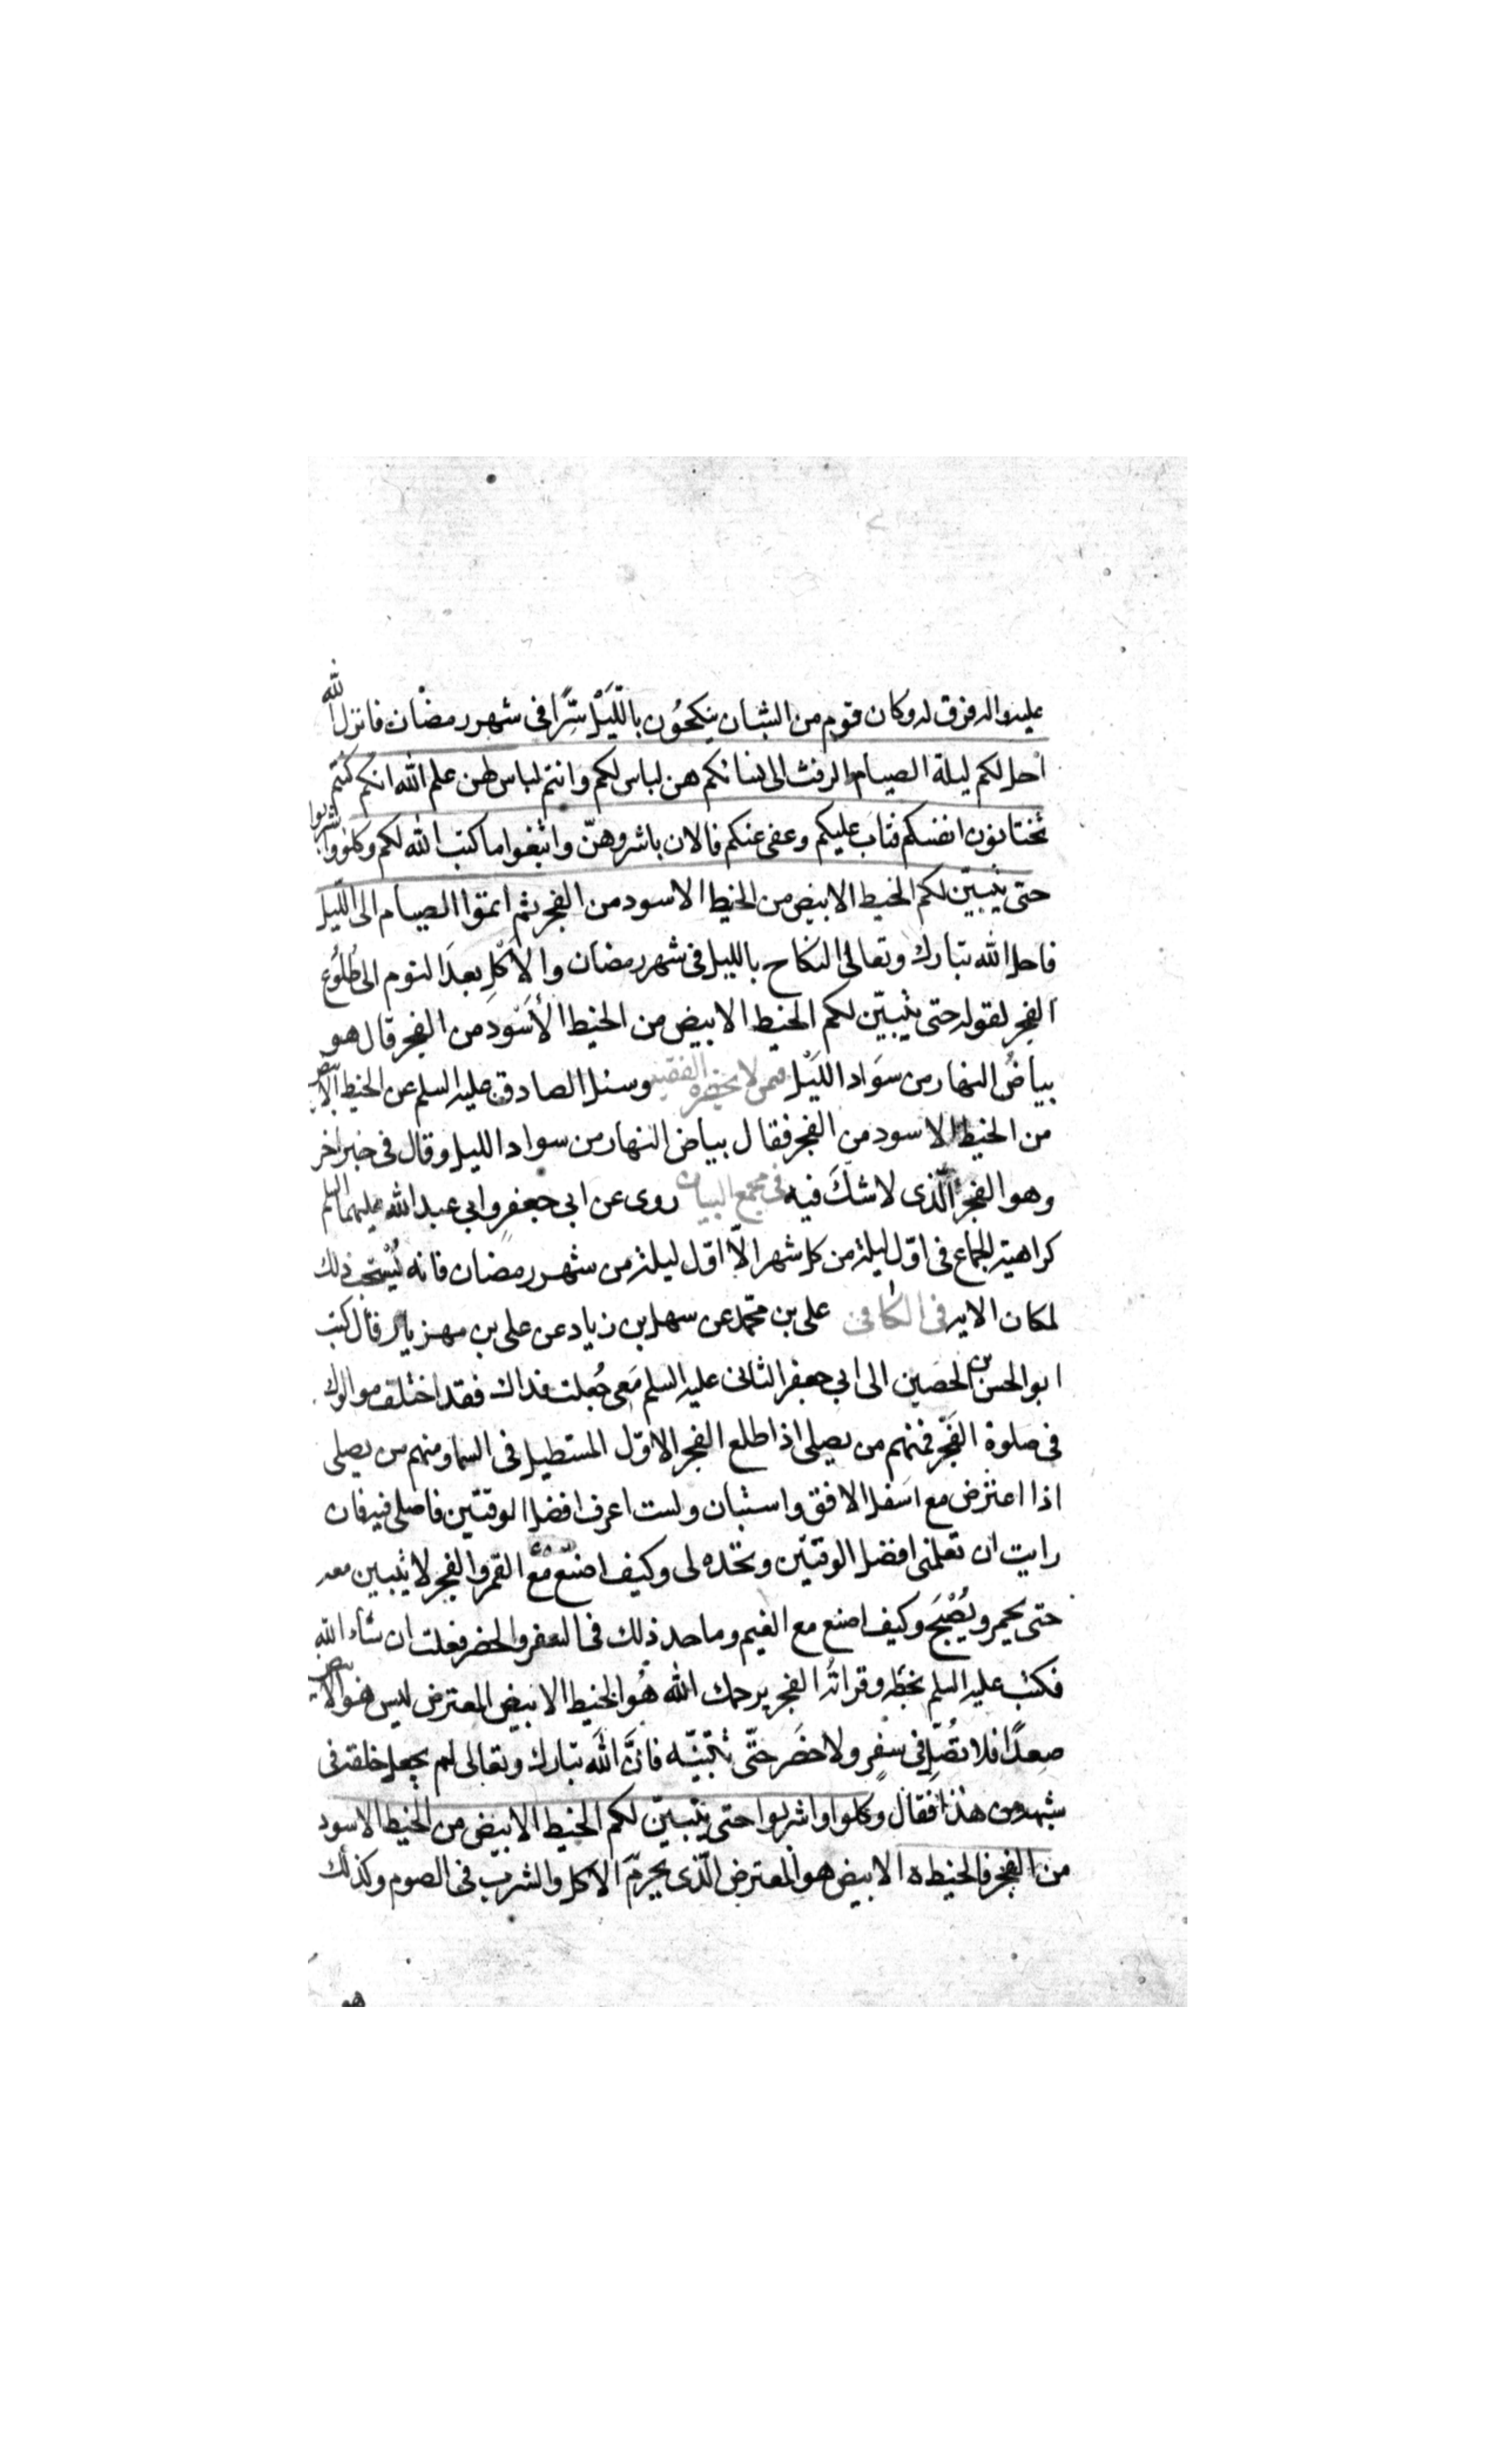 عليه واله فرق له وكان قوم من الشبان ينكحُون باللَّيْل سِّرًا فى شهر رمضان فانزل الله
احل لكم ليلة الصيام الرفث الى نسائكم هن لباس لكم وانتم لباس لهن علم الله انكم كنتم
تختانون انفسكم فتاب عليكم وعفى عنكم فالان باشروهنّ وابتغوا ما كتب الله لكم وكلوا واشربوا
حتى يتبيّن لكم الخيط الابيض من الخيط الاسود من الفجر ثم اتموا الصيام الى اللّيل
فاحل الله تبارك وتعالى النكاح بالليل فى شهر رمضان والاَكْلِ بعدَ النوم الى طُلُوُع
الفجر لقوله حتى يتبيّن لكم الخيط الابيض من الخيط الأَسَود من الفجر قال هو
بياضُ النهار من سَوَاد اللَيْل فى من لا يحضره الفقيه وسئل الصادق عليه السلم عن الخيط الابيض
من الخيط الاسود من الفجر فقال بياض النهار من سواد الليل وقال فى خبر اخر
وهو الفجر الّذى لا شكَ فيه فى مجمع البيان روى عن ابى جعفرٍ وابى عبد الله عليهما السلم
كراهية الجماع فى اوّل ليلة من كل شهر الّا اوّل ليلة من شهر رمضان فانه يُسْتحب ذلك
لمكان الايه فى الكافى على بن محّمد عن سهل بن زياد عن على بن مهزيار قال كتب
ابو الحسن بن الحصين الى ابى جعفر الثانى عليه السلم مَعى جُعلت فداك فقد اختلف موالوك
فى صلوة الفَجْر فمنهم من يصلى اذا طلع الفجر الاوّل المستطيل فى السماء ومنهم من يصلى
اذا اعترض مع اسفل الافق واستبان ولست اعرف افضل الوقتين فاصلى فيه فان
رايت ان تعلمنى افضل الوقتيّن وتحّده لى وكيف اصنع مع القمر والفجر لا يتبين معه
حتى يحمر ويُصْبحَ وكيف اصنع مع الغيم وما حد ذلك فى السفر والحضر فعلت ان شاء الله
فكتب عليه السلم بخطّه وقراتُه الفجر يرحمك الله هُو الخيط الابيض المعترض ليس هو الابيض
صعدًا فلا تُصَلّ فى سفر ولا حضَر حتّى تتبّينه فانَّ اللهَ تبارك وتعالى لم يجعل خلقه فى
شبهة من هذا فقال وكلوا واشربوا حتى يتبيّن لكم الخيط الابيض من الخيط الاسود
من الفجر فالخيط الابيض هو المعترض الّذى يحرّم الاكل والشرب فى الصوم وكذلك